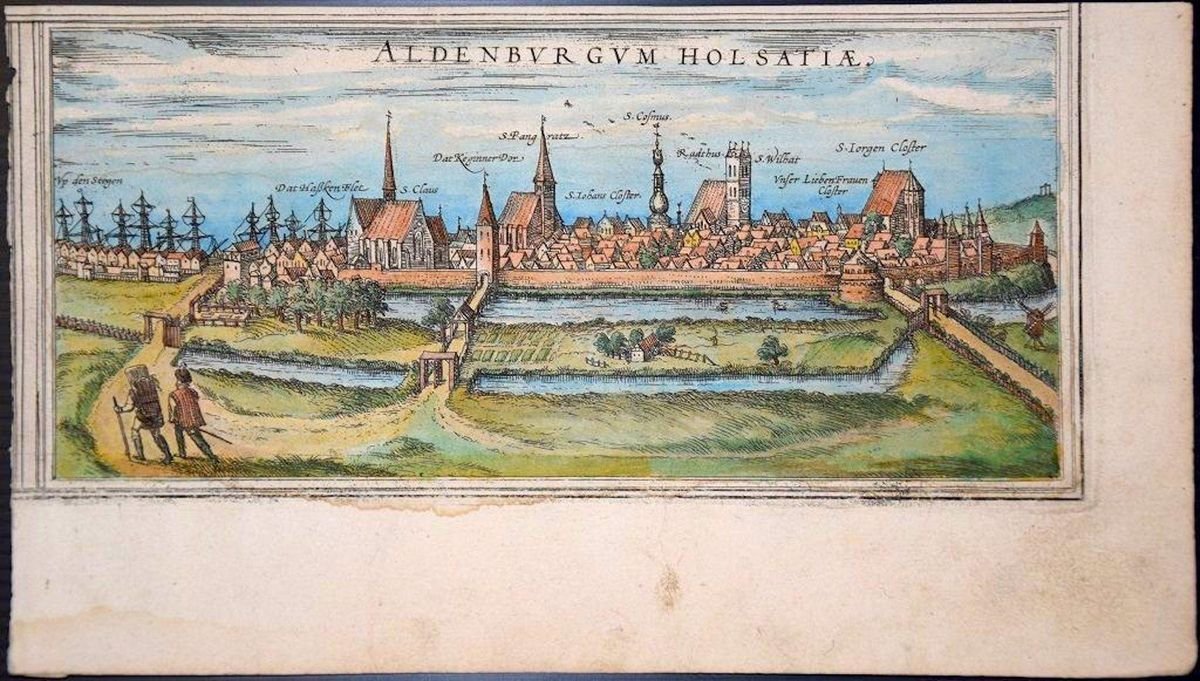 ALDENBVRGVM HOLSATIÆ.
S. Cosmus.
S. Pang ratz
Radthus
S. Wilhat
S. Iorgen Closter
Dat Keginner Dor
Vp den Stegen
Dat Haßken Flet
S. Claus
S. Iohans Closter.
Vnser Lieben Frauen
Closter